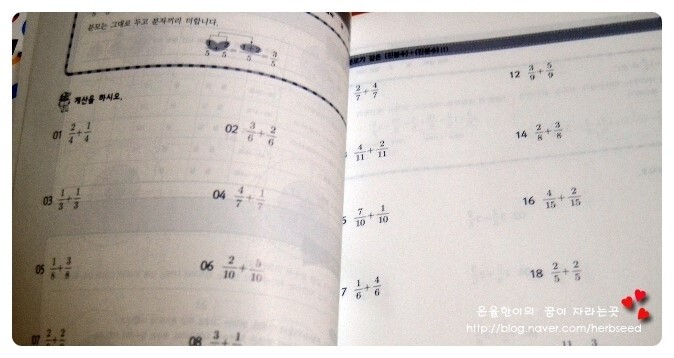 분모는 그대로 두고 분자끼리 더합니다.
계산을 하시오.
01 2/4 + 1/4
02 3/6 + 2/6
03 1/3 + 1/3
04 4/7 + 1/7
05 1/8 + 3/8
06 2/10 + 5/10
07
08
(진분수) + (진분수) (1)
2/7 + 4/7
12 3/9 + 5/9
4/11 + 2/11
14 2/8 + 3/8
7/10 + 1/10
16 4/15 + 2/15
1/6 + 4/6
18 2/5 + 2/5
은율한이의 꿈이 자라는곳
http://blog.naver.com/herbseed